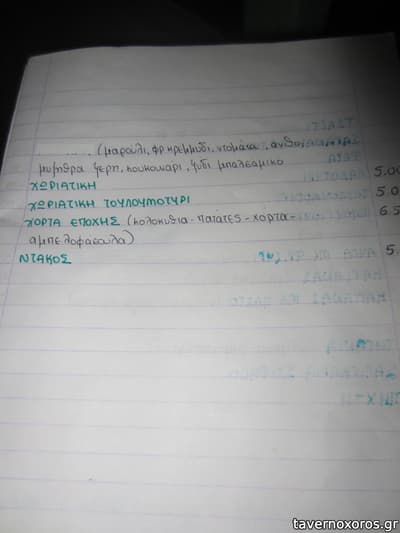 (μαρούλι, φρ κρεμμύδι, ντομάτα, ανθο
μυζηθρα ξερη, κουκουνάρι, ξύδι μπαλσαμικο
ΧΩΡΙΑΤΙΚΗ 5.00
ΧΩΡΙΑΤΙΚΗ ΤΟΥΛΟΥΜΟΤΥΡΙ 5.0
ΧΟΡΤΑ ΕΠΟΧΗΣ (κολοκυθια - πατάτες - χορτα - 6.5
αμπελοφασουλα)
ΝΤΑΚΟΣ 5.
tavernoxoros.gr